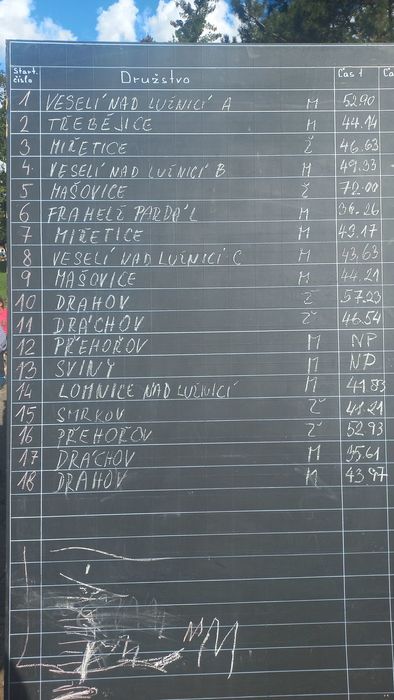 Start. číslo Družstvo Čas 1
1 VESELÍ NAD LUŽNICÍ A M 52.90
2 TŘEBĚJICE M 44.14
3 MIŘETICE Ž 46.63
4 VESELÍ NAD LUŽNICÍ B M 49.33
5 MAŠOVICE Ž 72.00
6 FRAHELŽ PARDÁL M 36.26
7 MIŘETICE M 43.17
8 VESELÍ NAD LUŽNICÍ C M 43.63
9 MAŠOVICE M 44.21
10 DRAHOV Ž 57.23
11 DRÁCHOV Ž 46.54
12 PŘEHOŘOV M NP
13 SVINY M NP
14 LOMNICE NAD LUŽNICÍ M 41 83
15 SMRKOV Ž 41.21
16 PŘEHOŘOV Ž 52.93
17 DRÁCHOV M 35.61
18 DRAHOV M 43.97